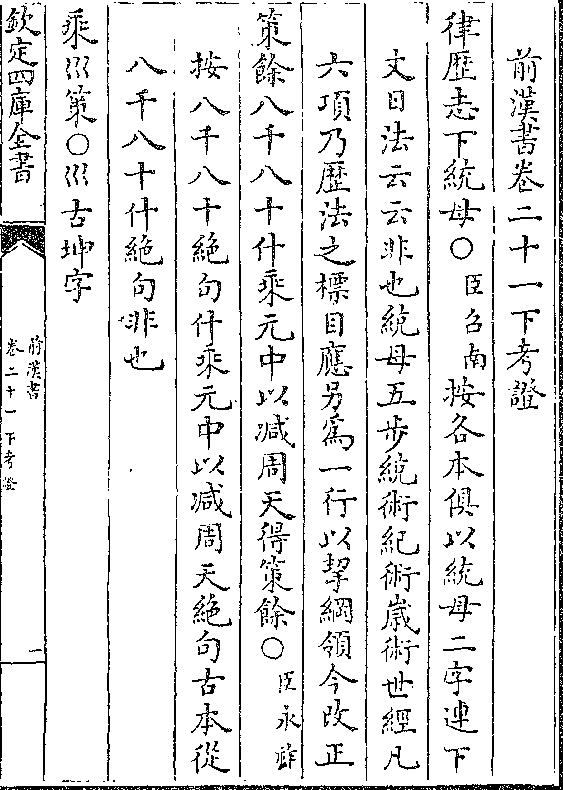 前漢書卷二十一下考證
律歴志下統母〇臣召南按各本俱以統母二字連下
文日法云云非也統母五步統術紀術歲術世經凡
六項乃歴法之標目應另為一行以挈綱領今改正
策餘八千八十什乘元中以减周天得策餘〇臣永祚
按八千八十絶句什乘元中以减周天絶句古本從
八千八十什絶句非也
乘巛策〇巛古坤字
欽定四庫全書
前漢書
卷二十一下考證
一